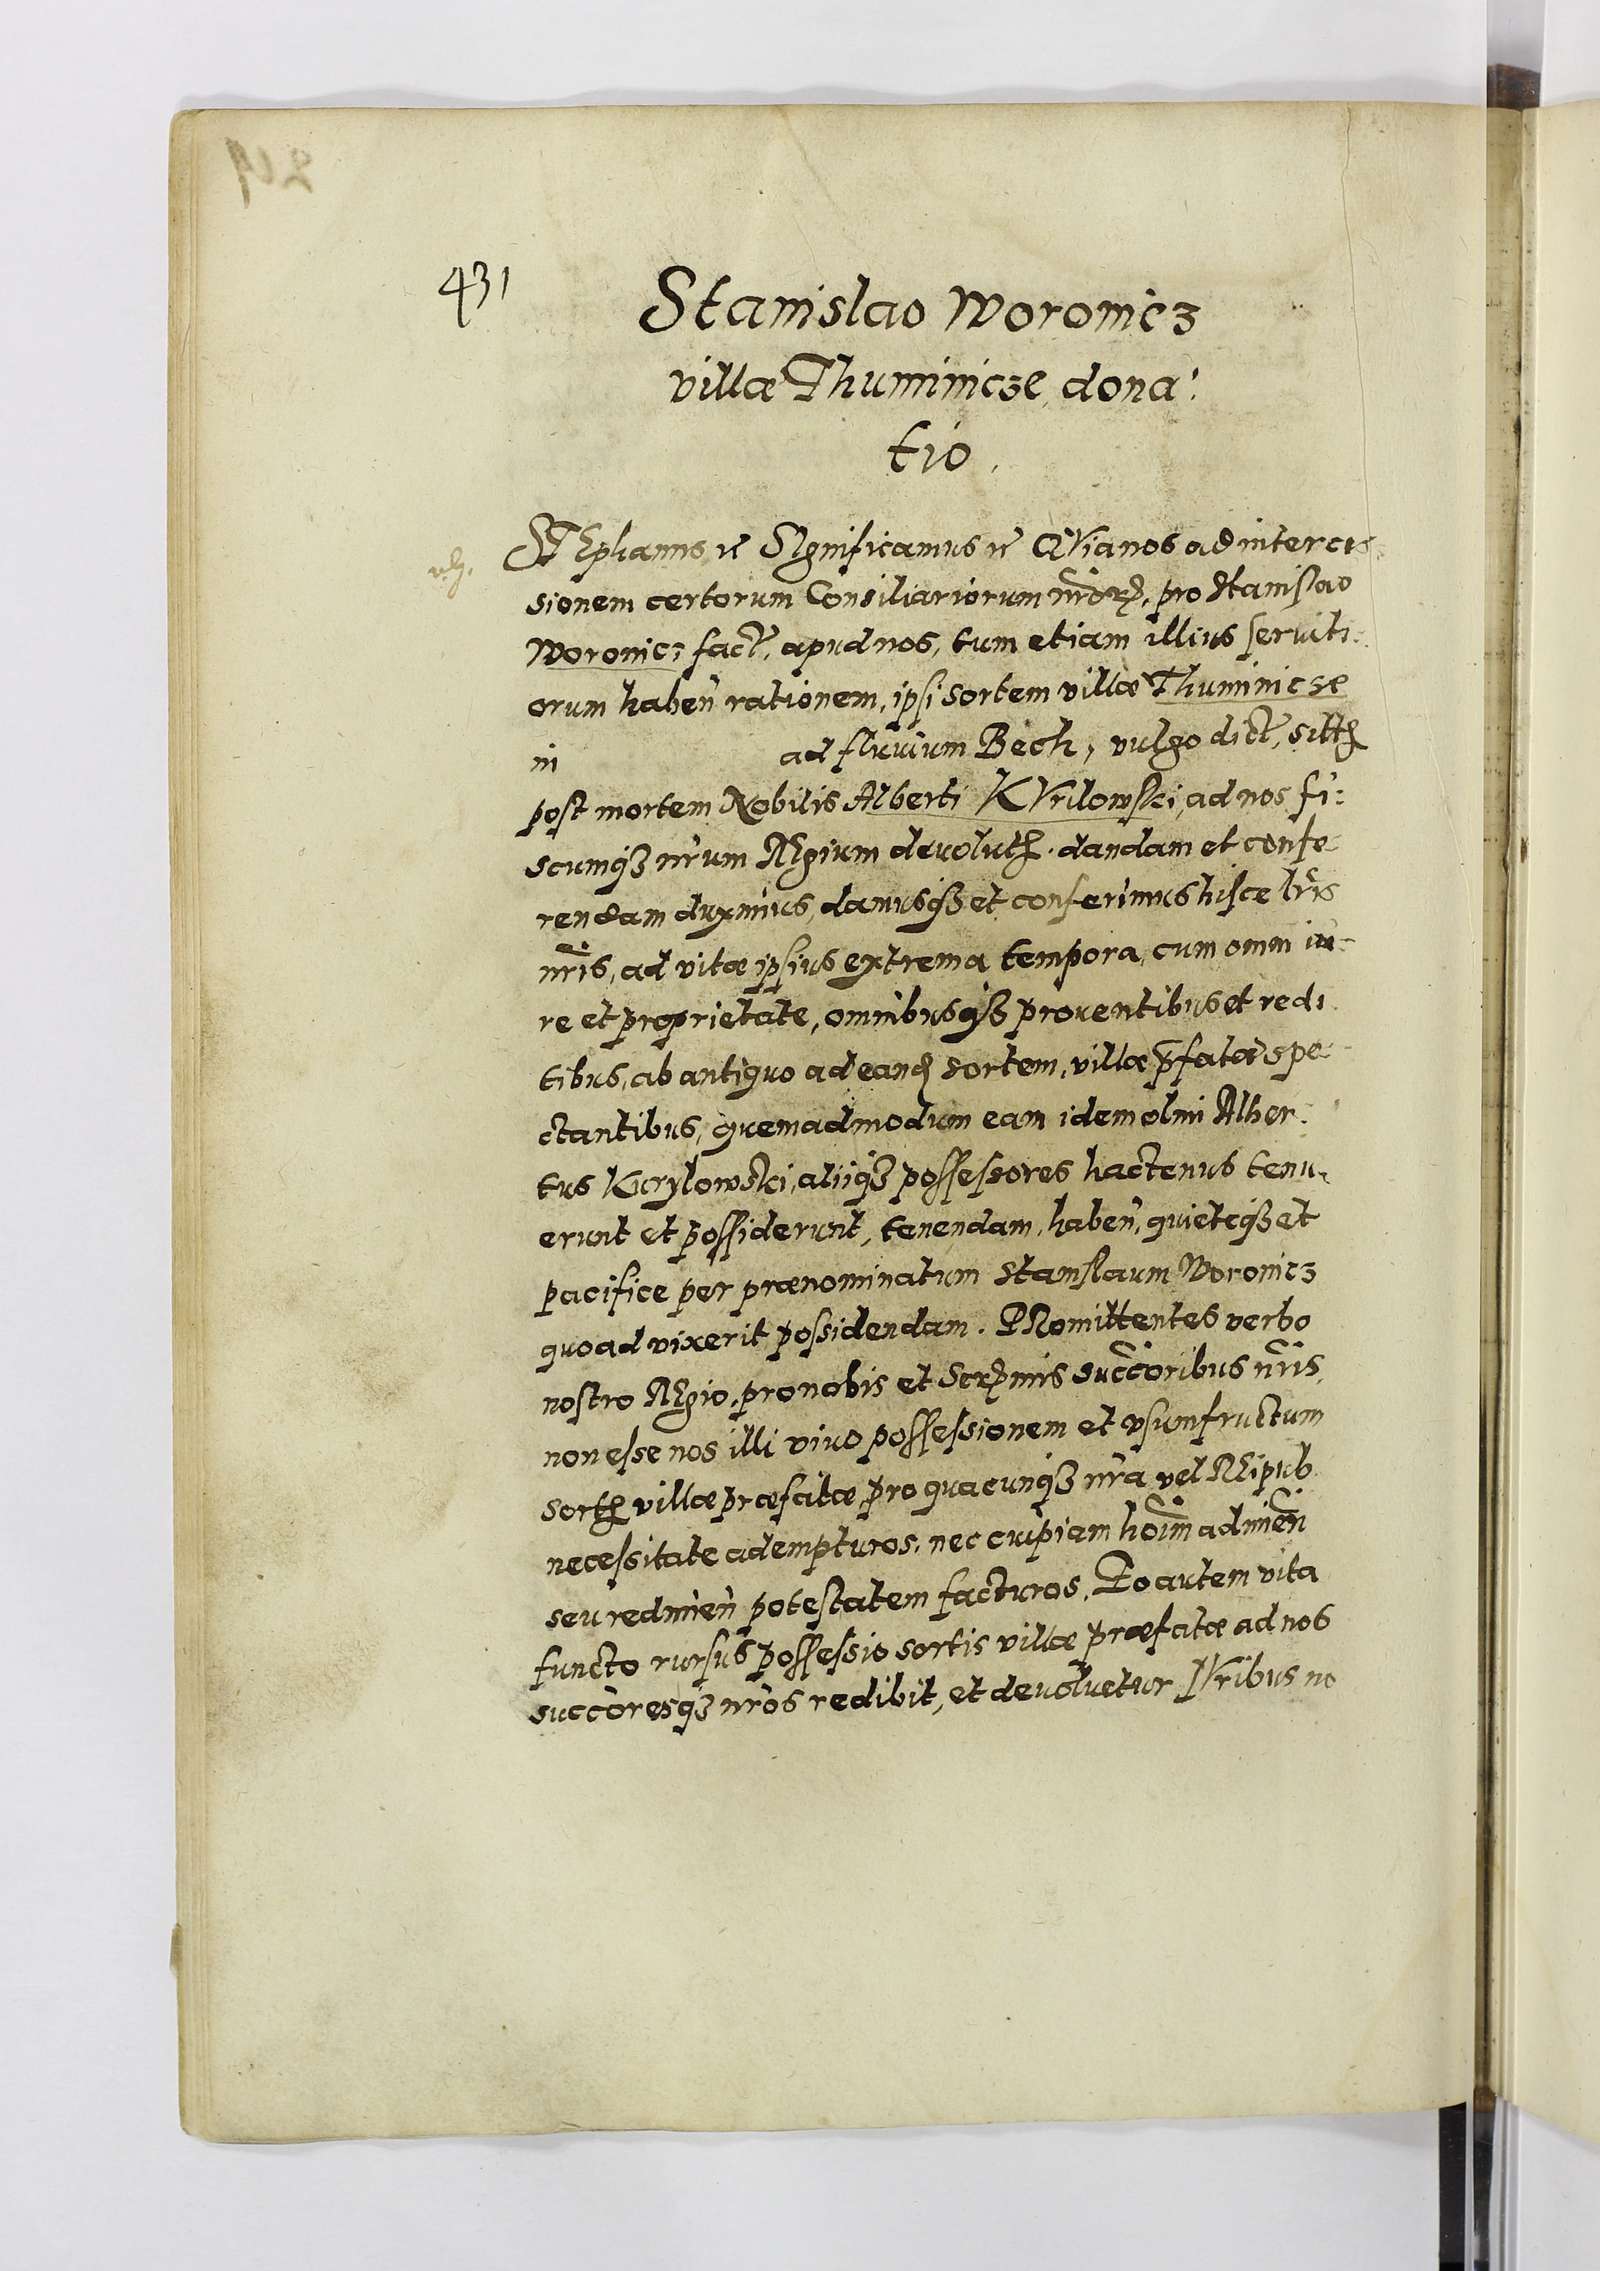 431
Stanislao Woronicz
villæ Thuminicze dona:
tio.
STEphanus etc Significamus etc QVia nos ad interces:
sionem certorum Consiliariorum nrorꝝ, pro Stanislao
Woronicz fact, apud nos, tum etiam illius seruiti:
orum haben rationem, ipsi sortem villæ Thuminicze
in ad fluuium Bech, vulgo dict, sitꝫ
post mortem Nobilis Alberti KVrilowski, ad nos fi:
scumqꝫ nrum REgium deuolutꝫ. dandam et confe
rendam duximus, damusqꝫ et conferimus hisce lris
nris, ad vitæ ipsius extrema tempora, cum omni iu:
re et proprietate, omnibusqꝫ prouentibus et redi
tibus, ab antiquo ad eandꝫ sortem, villæ pfatæ spe
ctantibus, quemadmodum eam idem olim Alber:
tus Kurylowski, aliiqꝫ possessores hactenus tenu:
erunt et possiderunt, tenendam, haben, quieteqꝫ et
pacifice per prænominatum Stanislaum Woronicz
quoad vixerit possidendam. PRomittentes verbo
nostro REgio, pro nobis et Serꝫmis succoribus nris,
non esse nos illi viuo possessionem et vsumfructum
sortꝫ villæ præfatæ pro quacunqꝫ nra vel REipub
necessitate adempturos, nec cuipiam hoim adimen
seu redimen potestatem facturos. Eo autem vita
functo rursus possessio sortis villæ præfatæ ad nos
succoresqꝫ nros redibit, et deuoluetur IVribus no